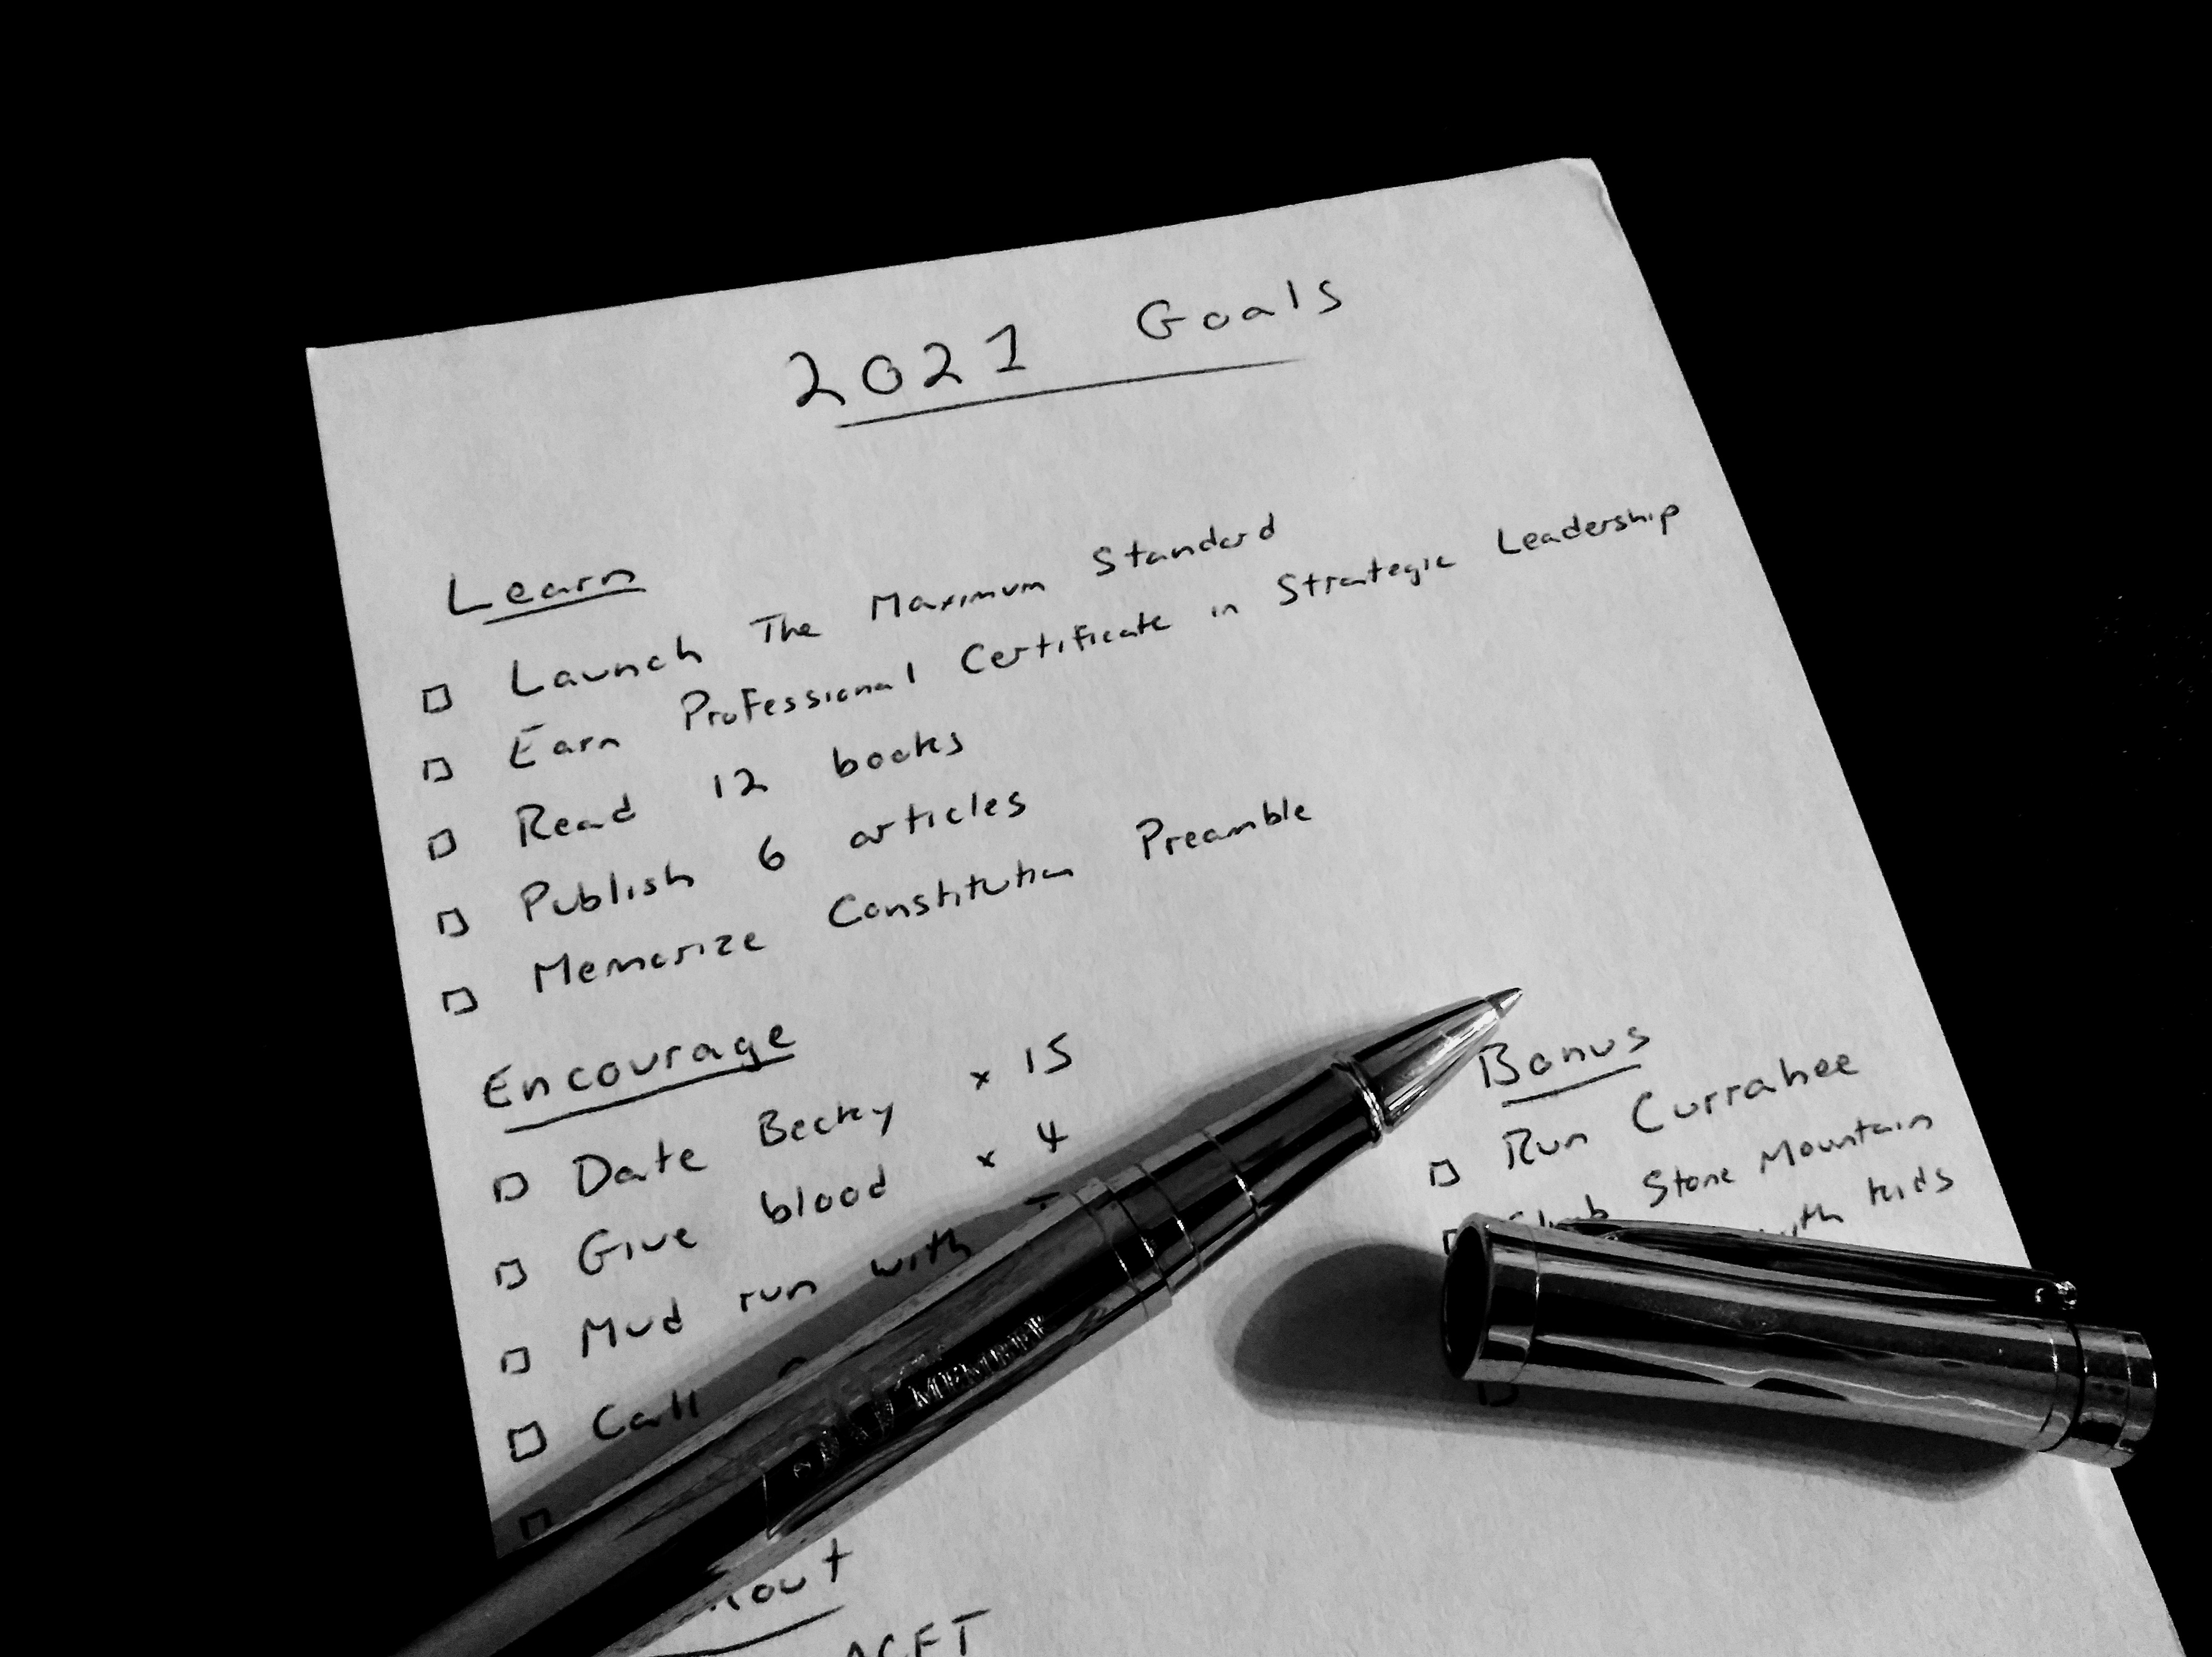 2021 Goals
Learn
Launch The Maximum Standard
Earn Professional Certificate in Strategic Leadership
Read 12 books
Publish 6 articles
Memorize Constitution Preamble
Encourage
Date Becky x 15
Give blood x 4
Mud run with
Call
Bonus
Run Currahee
Climb Stone Mountain
with kids
ACFT